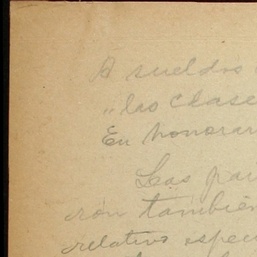 A sueldos
" las clase
En honorar
Las par
ron también
relativo espec